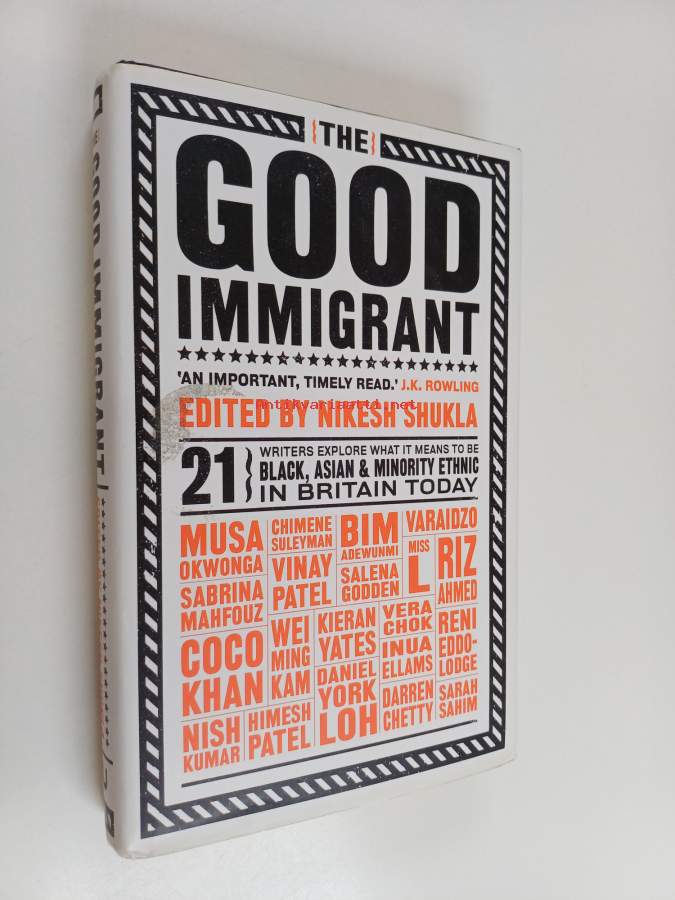 {THE}
GOOD
IMMIGRANT
'AN IMPORTANT, TIMELY READ.' J.K. ROWLING
antikvariaatti.net
EDITED BY NIKESH SHUKLA
21} WRITERS EXPLORE WHAT IT MEANS TO BE
BLACK, ASIAN & MINORITY ETHNIC
IN BRITAIN TODAY
MUSA
OKWONGA
CHIMENE
SULEYMAN
BIM
ADEWUNMI
VARAIDZO
SABRINA
MAHFOUZ
VINAY
PATEL
SALENA
GODDEN
MISS
L
RIZ
AHMED
COCO
KHAN
WEI
MING
KAM
KIERAN
YATES
VERA
CHOK
INUA
ELLAMS
RENI
EDDO-
LODGE
NISH
KUMAR
HIMESH
PATEL
DANIEL
YORK
LOH
DARREN
CHETTY
SARAH
SAHIM
GOOD IMMIGRANT